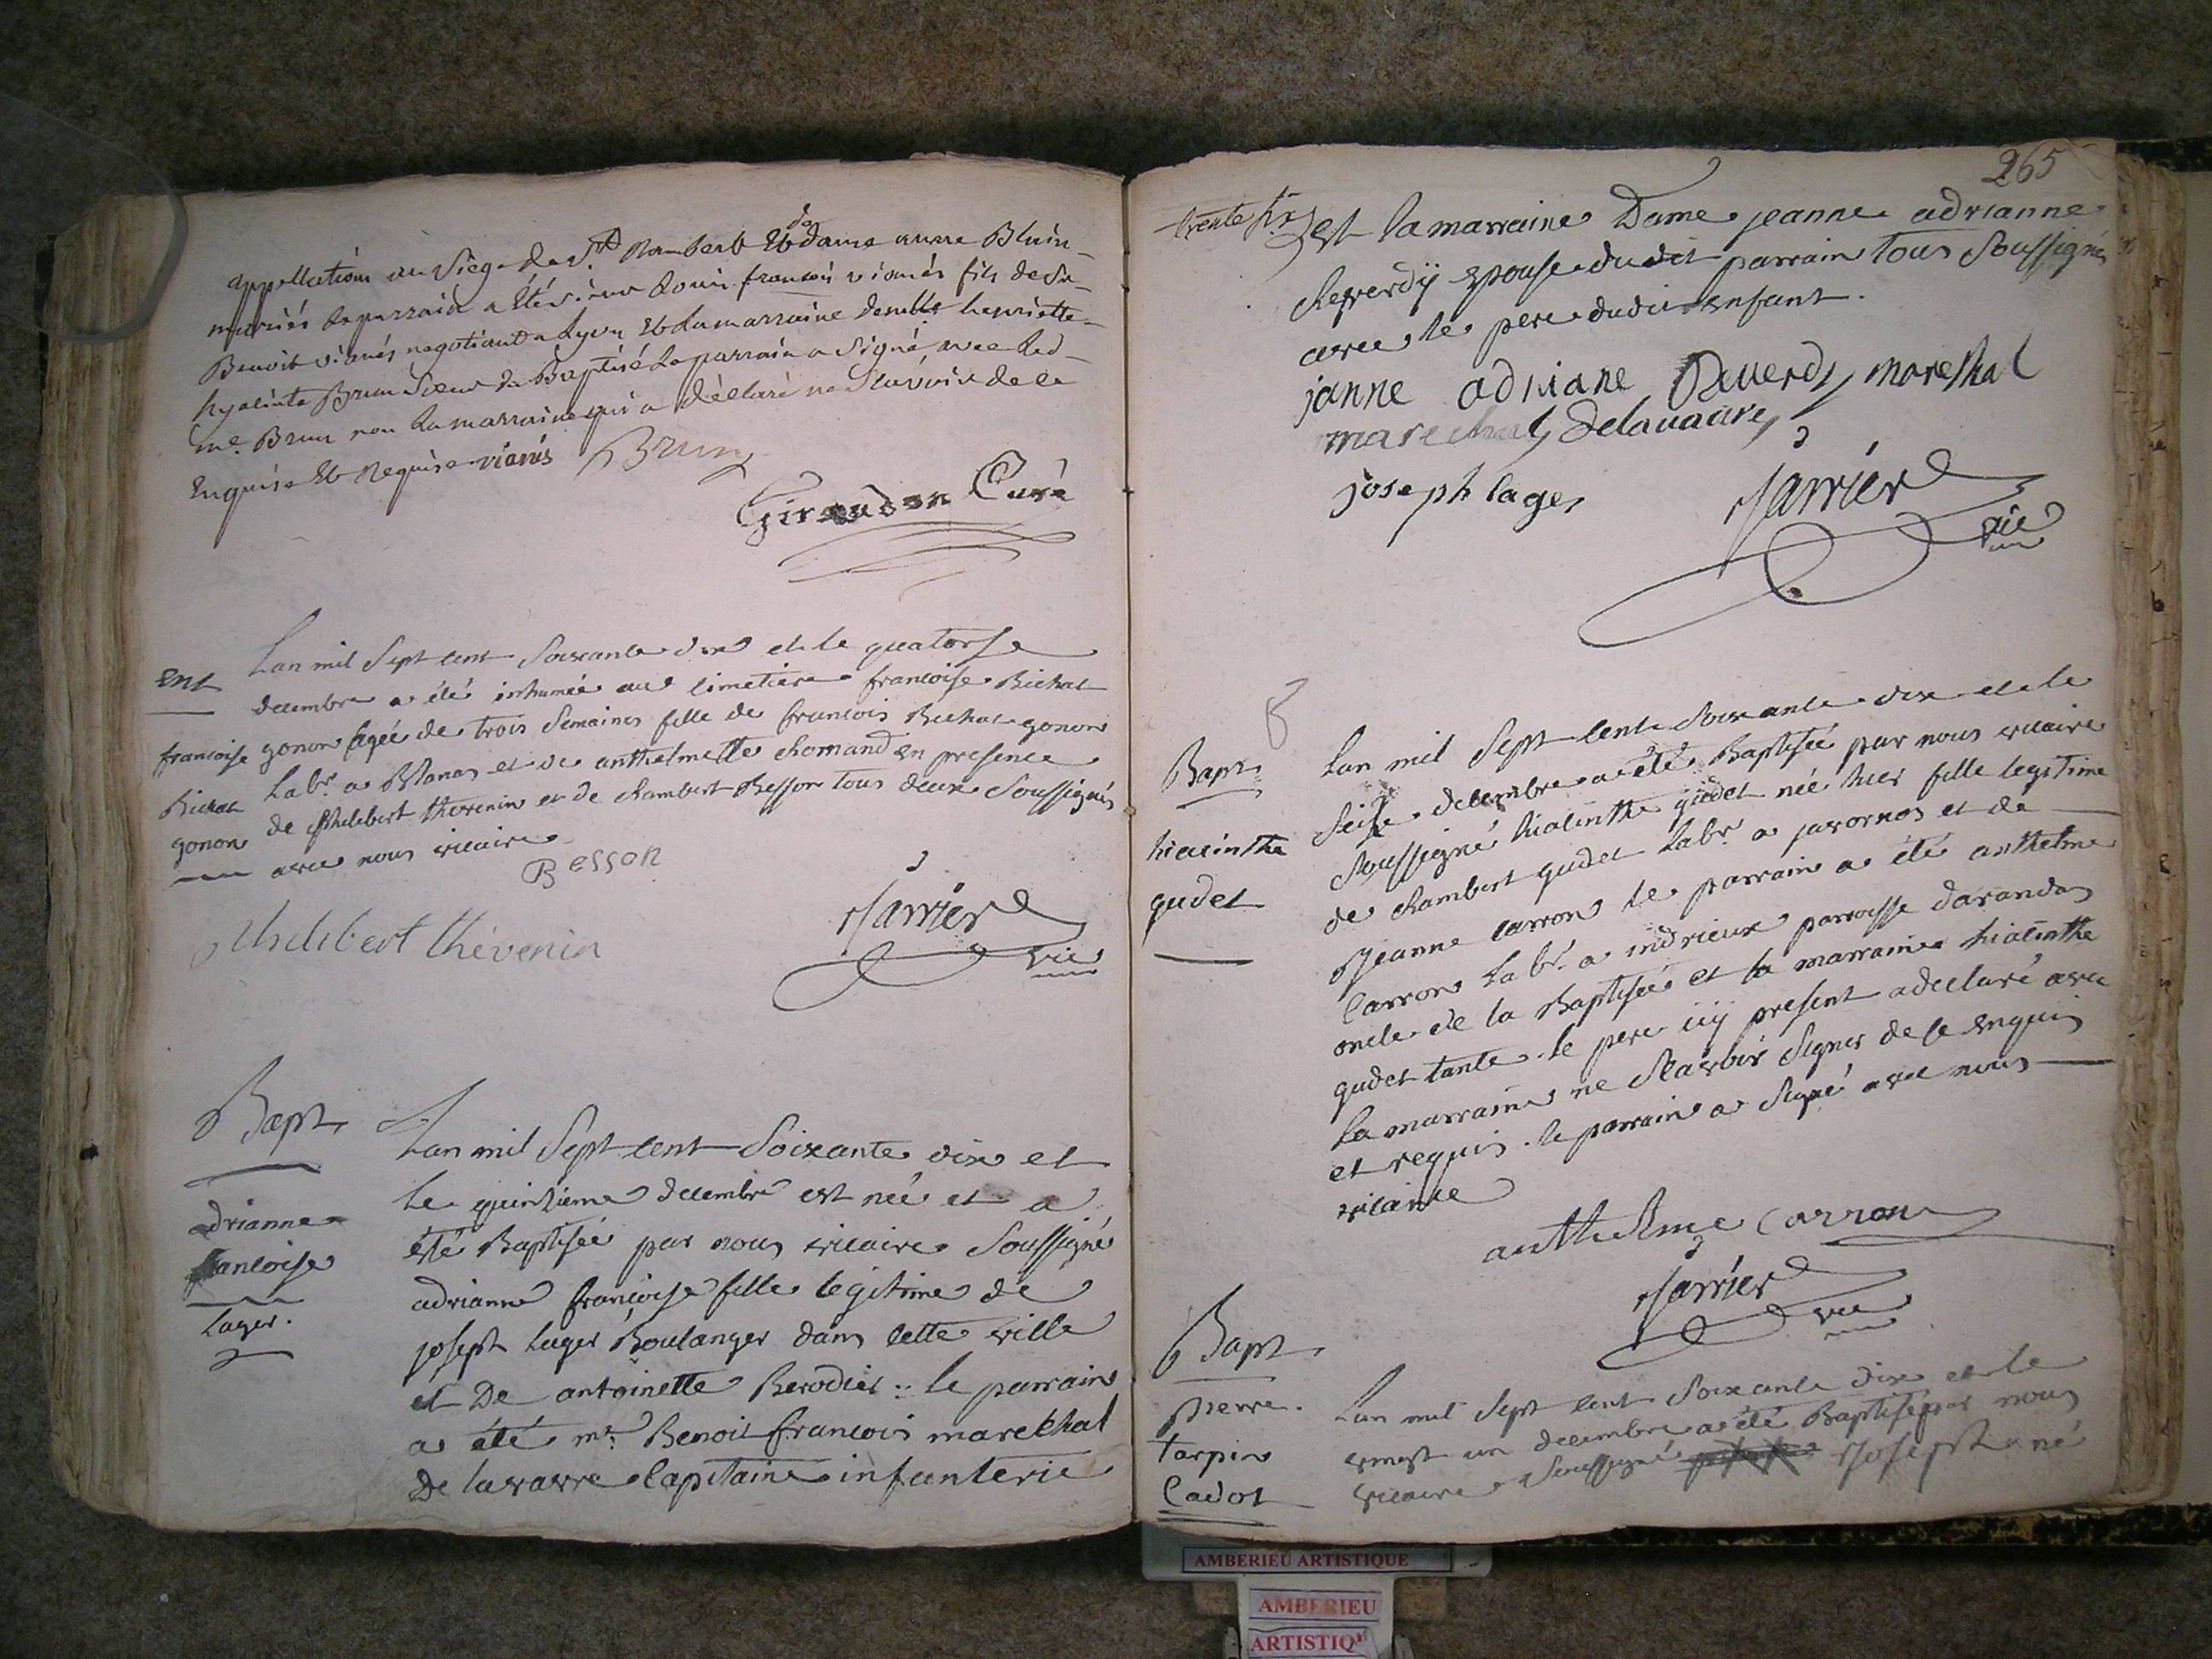 appellations au Siege de St Rambert Et de dame anne Bluin
mariés le parrain a Eté sieur Louis françois vianés fils de Sr
Benoit vianés negotiant a Lyon Et la marraine demlle henriette
hyacinte Brun Soeur du Baptisé le parrain a Signé avec led
me. Brun non la marraine qui a déclaré ne Scavoir de ce
Enquise Et Requise vianés Brun
Giraudon Curé
Ent
françoise
Bichat
gonon
Lan mil Sept cent Soixante dix et le quatorse
decembre a été inhumée au cimetiere françoise Bichat
gonon agée de trois Semaines fille de francois Bichat gonon
Labr. a Blanas et de anthelmette Chomand en presence
de Philibert thevenin et de Chambert Besson tous deux Soussignés
avec nous vicaire
Besson
philibert thévenin
Jarrier
vic
Bapt.
adrianne
francoise
Lager.
Lan mil Sept cent Soixante dix et
le quinzieme decembre est neé et a
été Baptisée par nous vicaire Soussigné
adrianne françoise fille legitime de
joseph Lager Boulanger dans cette ville
et De antoinette Berodier : le parrain
a été mr. Benoit francois marechal
De lavavre Capitaine infanterie
265
trente six
et la marraine Dame jeanne adrianne
Reverdÿ epouse du dit parrain tous Soussignés
avec le pere du dit enfant.
janne adriane Reuerdy mareshal
marechal Delauavre
joseph lager
Jarrier
vic
Bapt.
hiacinthe
gudet
Lan mil Sept cent Soixante dix et le
Seise decembre a été Baptisée par nous vicaire
Soussigné hiacinthe gudet née hier fille legitime
de Chambert gudet Labr. a javornos et de
Jeanne Carron le parrain a été anthelme
Carron Labr. a indrieux parroisse darandas
oncle de la Baptisée et la marraine hiacinthe
gudet tante. le pere icy present a declaré avec
La marraine ne Scavoir Signer de ce Enquis
et requis. le parrain a Signé avec nous
vicaire
anthelme Carron
Jarrier
vic
Bapt.
pierre.
tarpin
Cadot
Lan mil Sept cent Soixante dix et le
vingt un decembre a été Baptisé par nous
vicaire Soussigné Joseph né